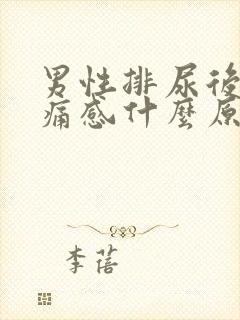 男性排尿後
痛感什麼原
李蓓